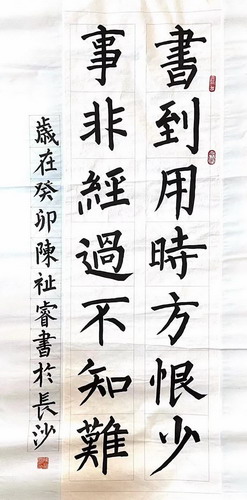 書到用時方恨少
事非經過不知難
歲在癸卯陳祉睿書於長沙